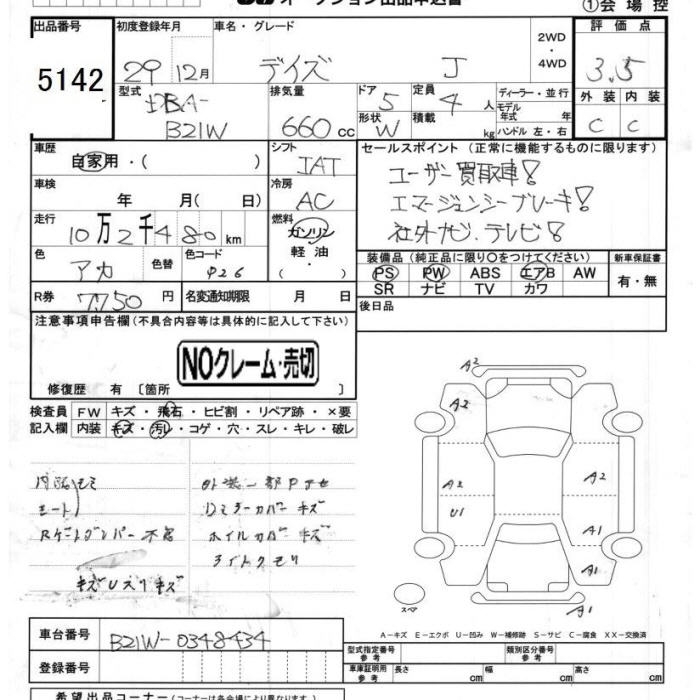 オークション出品申込書
①会場控
出品番号
5142
初度登録年月
29 12月
車名・グレード
デイズ J
2WD
・4WD
評価点
3.5
外装 内装
C C
型式
DBA-
B21W
排気量
660 cc
ドア 5
形状 W
定員 4 人
積載 kg
ディーラー・並行
モデル年式 年
ハンドル 左・右
車歴
自家用・( )
シフト
IAT
セールスポイント (正常に機能するものに限ります)
ユーザー買取車!
エマージェンシーブレーキ!
社外ナビ、テレビ!
車検
年 月( 日)
冷房
AC
走行
10万2千480 km
燃料
ガソリン
軽油
・( )
色
アカ
色替
色コード
426
装備品 (純正品に限り○をつけてください)
PS PW ABS エアB AW
SR ナビ TV カワ
新車保証書
有・無
R券 7750 円
名変通知期限 月 日
後日品
注意事項申告欄(不具合内容等は具体的に記入して下さい)
NOクレーム・売切
修復歴 有 〔箇所 〕
検査員記入欄
FW キズ・飛石・ヒビ割・リペア跡・×要
内装 キズ・汚レ・コゲ・穴・スレ・キレ・破レ
シート
外装一部
ドミラーカバー キズ
ホイルカバー キズ
ライトクモリ
キズUスリキズ
A2
A2
A2
U1
A2
A1
A1
A1
スペア
A-キズ E-エクボ U-凹み W-補修跡 S-サビ C-腐食 XX-交換済
車台番号
B21W-0348434
登録番号
型式指定番号
参考
類別区分番号
参考
車庫証明用
参考
長さ cm 幅 cm 高さ cm
希望出品コーナー(コーナーは各会場により異なります)